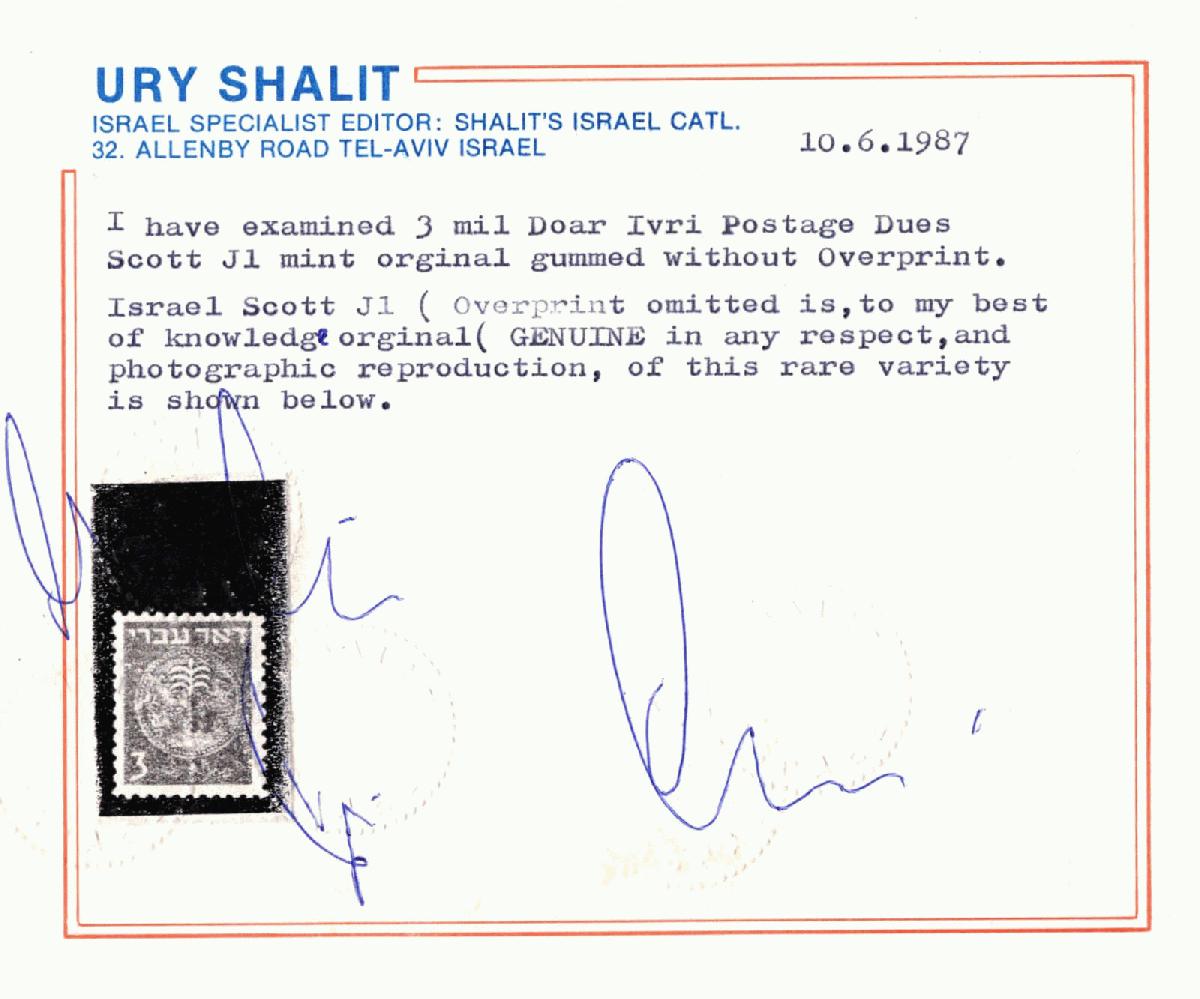 URY SHALIT
ISRAEL SPECIALIST EDITOR: SHALIT'S ISRAEL CATL.
32. ALLENBY ROAD TEL-AVIV ISRAEL
10.6.1987
I have examined 3 mil Doar Ivri Postage Dues
Scott J1 mint orginal gummed without Overprint.
Israel Scott J1 ( Overprint omitted is,to my best
of knowledge orginal( GENUINE in any respect,and
photographic reproduction, of this rare variety
is shown below.
דאר עברי
3